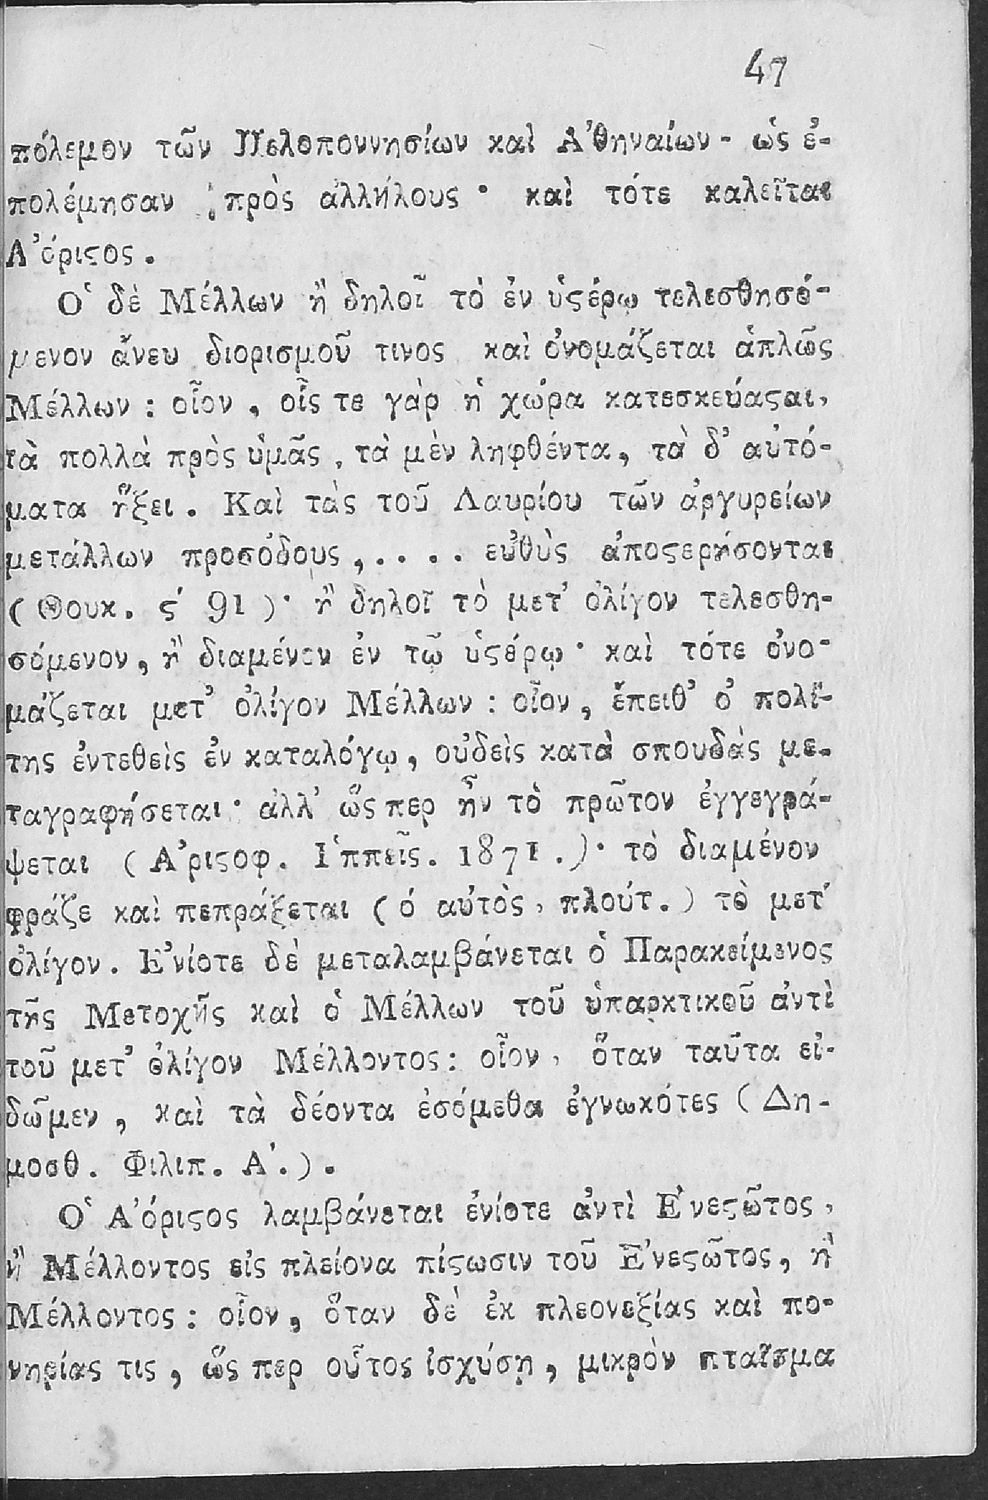 47
πόλεμον τῶν Πελοποννησίων καὶ Ἀθηναίων - ὡς ἐ-
πολέμησαν πρὸς ἀλλήλους · καὶ τότε καλεῖται
Ἀόριϛος.
Ὁ δὲ Μέλλων ἢ δηλοῖ τὸ ἐν ὑϛέρῳ τελεσθησό-
μενον ἄνευ διορισμοῦ τινος καὶ ὀνομάζεται ἁπλῶς
Μέλλων : οἷον, οἷς τε γὰρ ἡ χώρα κατεσκεύαϛαι,
τὰ πολλὰ πρὸς ὑμᾶς, τὰ μὲν ληφθέντα, τὰ δ' αὐτό-
ματα ἥξει. Καὶ τὰς τοῦ Λαυρίου τῶν ἀργυρείων
μετάλλων προσόδους,.... εὐθὺς ἀποϛερήσονται
(Θουκ. ϛ' 91)· ἢ δηλοῖ τὸ μετ' ὀλίγον τελεσθη-
σόμενον, ἢ διαμένον ἐν τῷ ὑϛέρῳ · καὶ τότε ὀνο-
μάζεται μετ' ὀλίγον Μέλλων : οἷον, ἔπειθ' ὁ πολί-
της ἐντεθεὶς ἐν καταλόγῳ, οὐδεὶς κατὰ σπουδὰς με-
ταγραφήσεται · ἀλλ' ὥς περ ἦν τὸ πρῶτον ἐγγεγρά-
ψεται (Ἀριϛοφ. Ἱππεῖς. 1871.)· τὸ διαμένον
φράζε καὶ πεπράξεται (ὁ αὐτὸς, πλούτ.) τὸ μετ'
ὀλίγον. Ἐνίοτε δὲ μεταλαμβάνεται ὁ Παρακείμενος
τῆς Μετοχῆς καὶ ὁ Μέλλων τοῦ ὑπαρκτικοῦ ἀντὶ
τοῦ μετ' ὀλίγον Μέλλοντος : οἷον, ὅταν ταῦτα εἰ-
δῶμεν, καὶ τὰ δέοντα ἐσόμεθα ἐγνωκότες (Δη-
μοσθ. Φιλιπ. Α'.).
Ὁ Ἀόριϛος λαμβάνεται ἐνίοτε ἀντὶ Ἐνεϛῶτος,
ἢ Μέλλοντος εἰς πλείονα πίϛωσιν τοῦ Ἐνεϛῶτος, ἢ
Μέλλοντος : οἷον, ὅταν δὲ ἐκ πλεονεξίας καὶ πο-
νηρίας τις, ὥς περ οὗτος ἰσχύσῃ, μικρὸν πταῖσμα